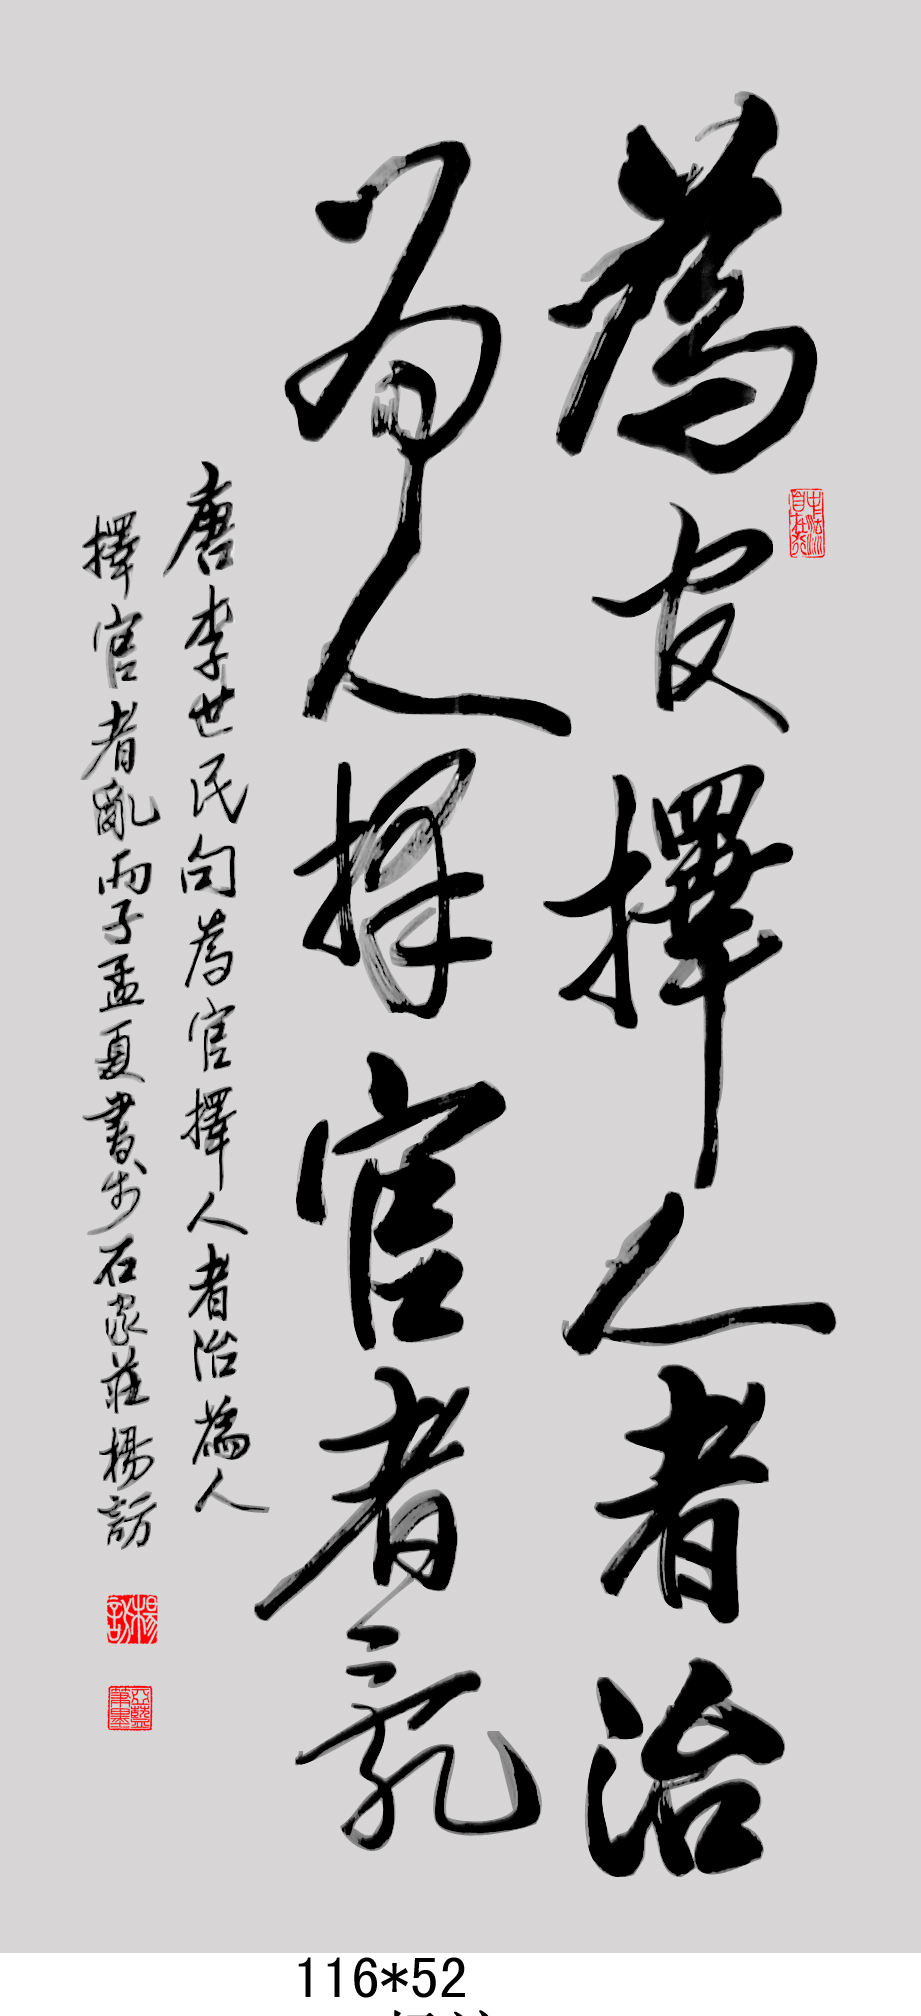 為官擇人者治
為人擇官者亂
唐李世民句為官擇人者治為人
擇官者亂丙子孟夏書於石家莊楊訪
楊訪
116*52